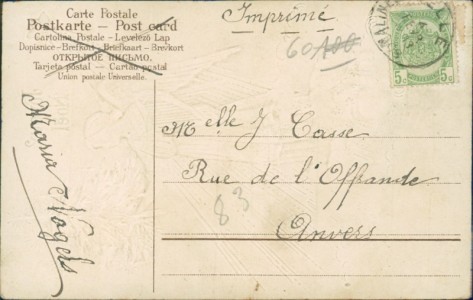 Carte Postale
Postkarte — Post card
Cartolina Postale - Levelező Lap
Dopisnice - Brefkort - Briefkaart - Brevkort
ОТКРЫТОЕ ПИСЬМО.
Tarjeta postal — Cartão postal
Union postale Universelle.
Imprimé
60
100
5c 5c
Melle J Casse
Rue de l'Offrande
83
Anvers
Maria Nogels